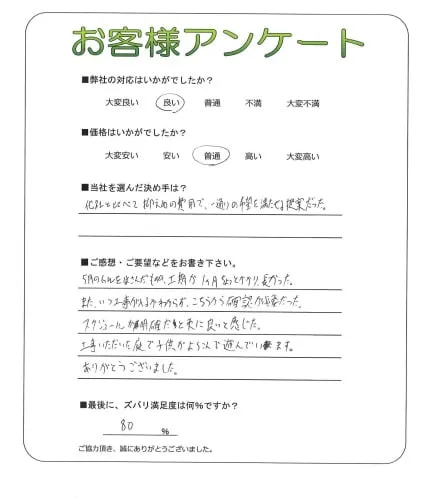 お客様アンケート
■弊社の対応はいかがでしたか？
大変良い 良い 普通 不満 大変不満
■価格はいかがでしたか？
大変安い 安い 普通 高い 大変高い
■当社を選んだ決め手は？
他社と比べて抑えめの費用で、一通りの希望を満たせる提案だった。
■ご感想・ご要望などをお書き下さい。
5月のGWをはさんだため、工期が1ヶ月ちょっとかかり、長かった。
また、いつ工事が入るかわからず、こちらから確認が必要だった。
スケジュールが明確だと更に良いと感じた。
工事いただいた庭で子供がよろこんで遊んでいます。
ありがとうございました。
■最後に、ズバリ満足度は何%ですか？
80 %
ご協力頂き、誠にありがとうございました。